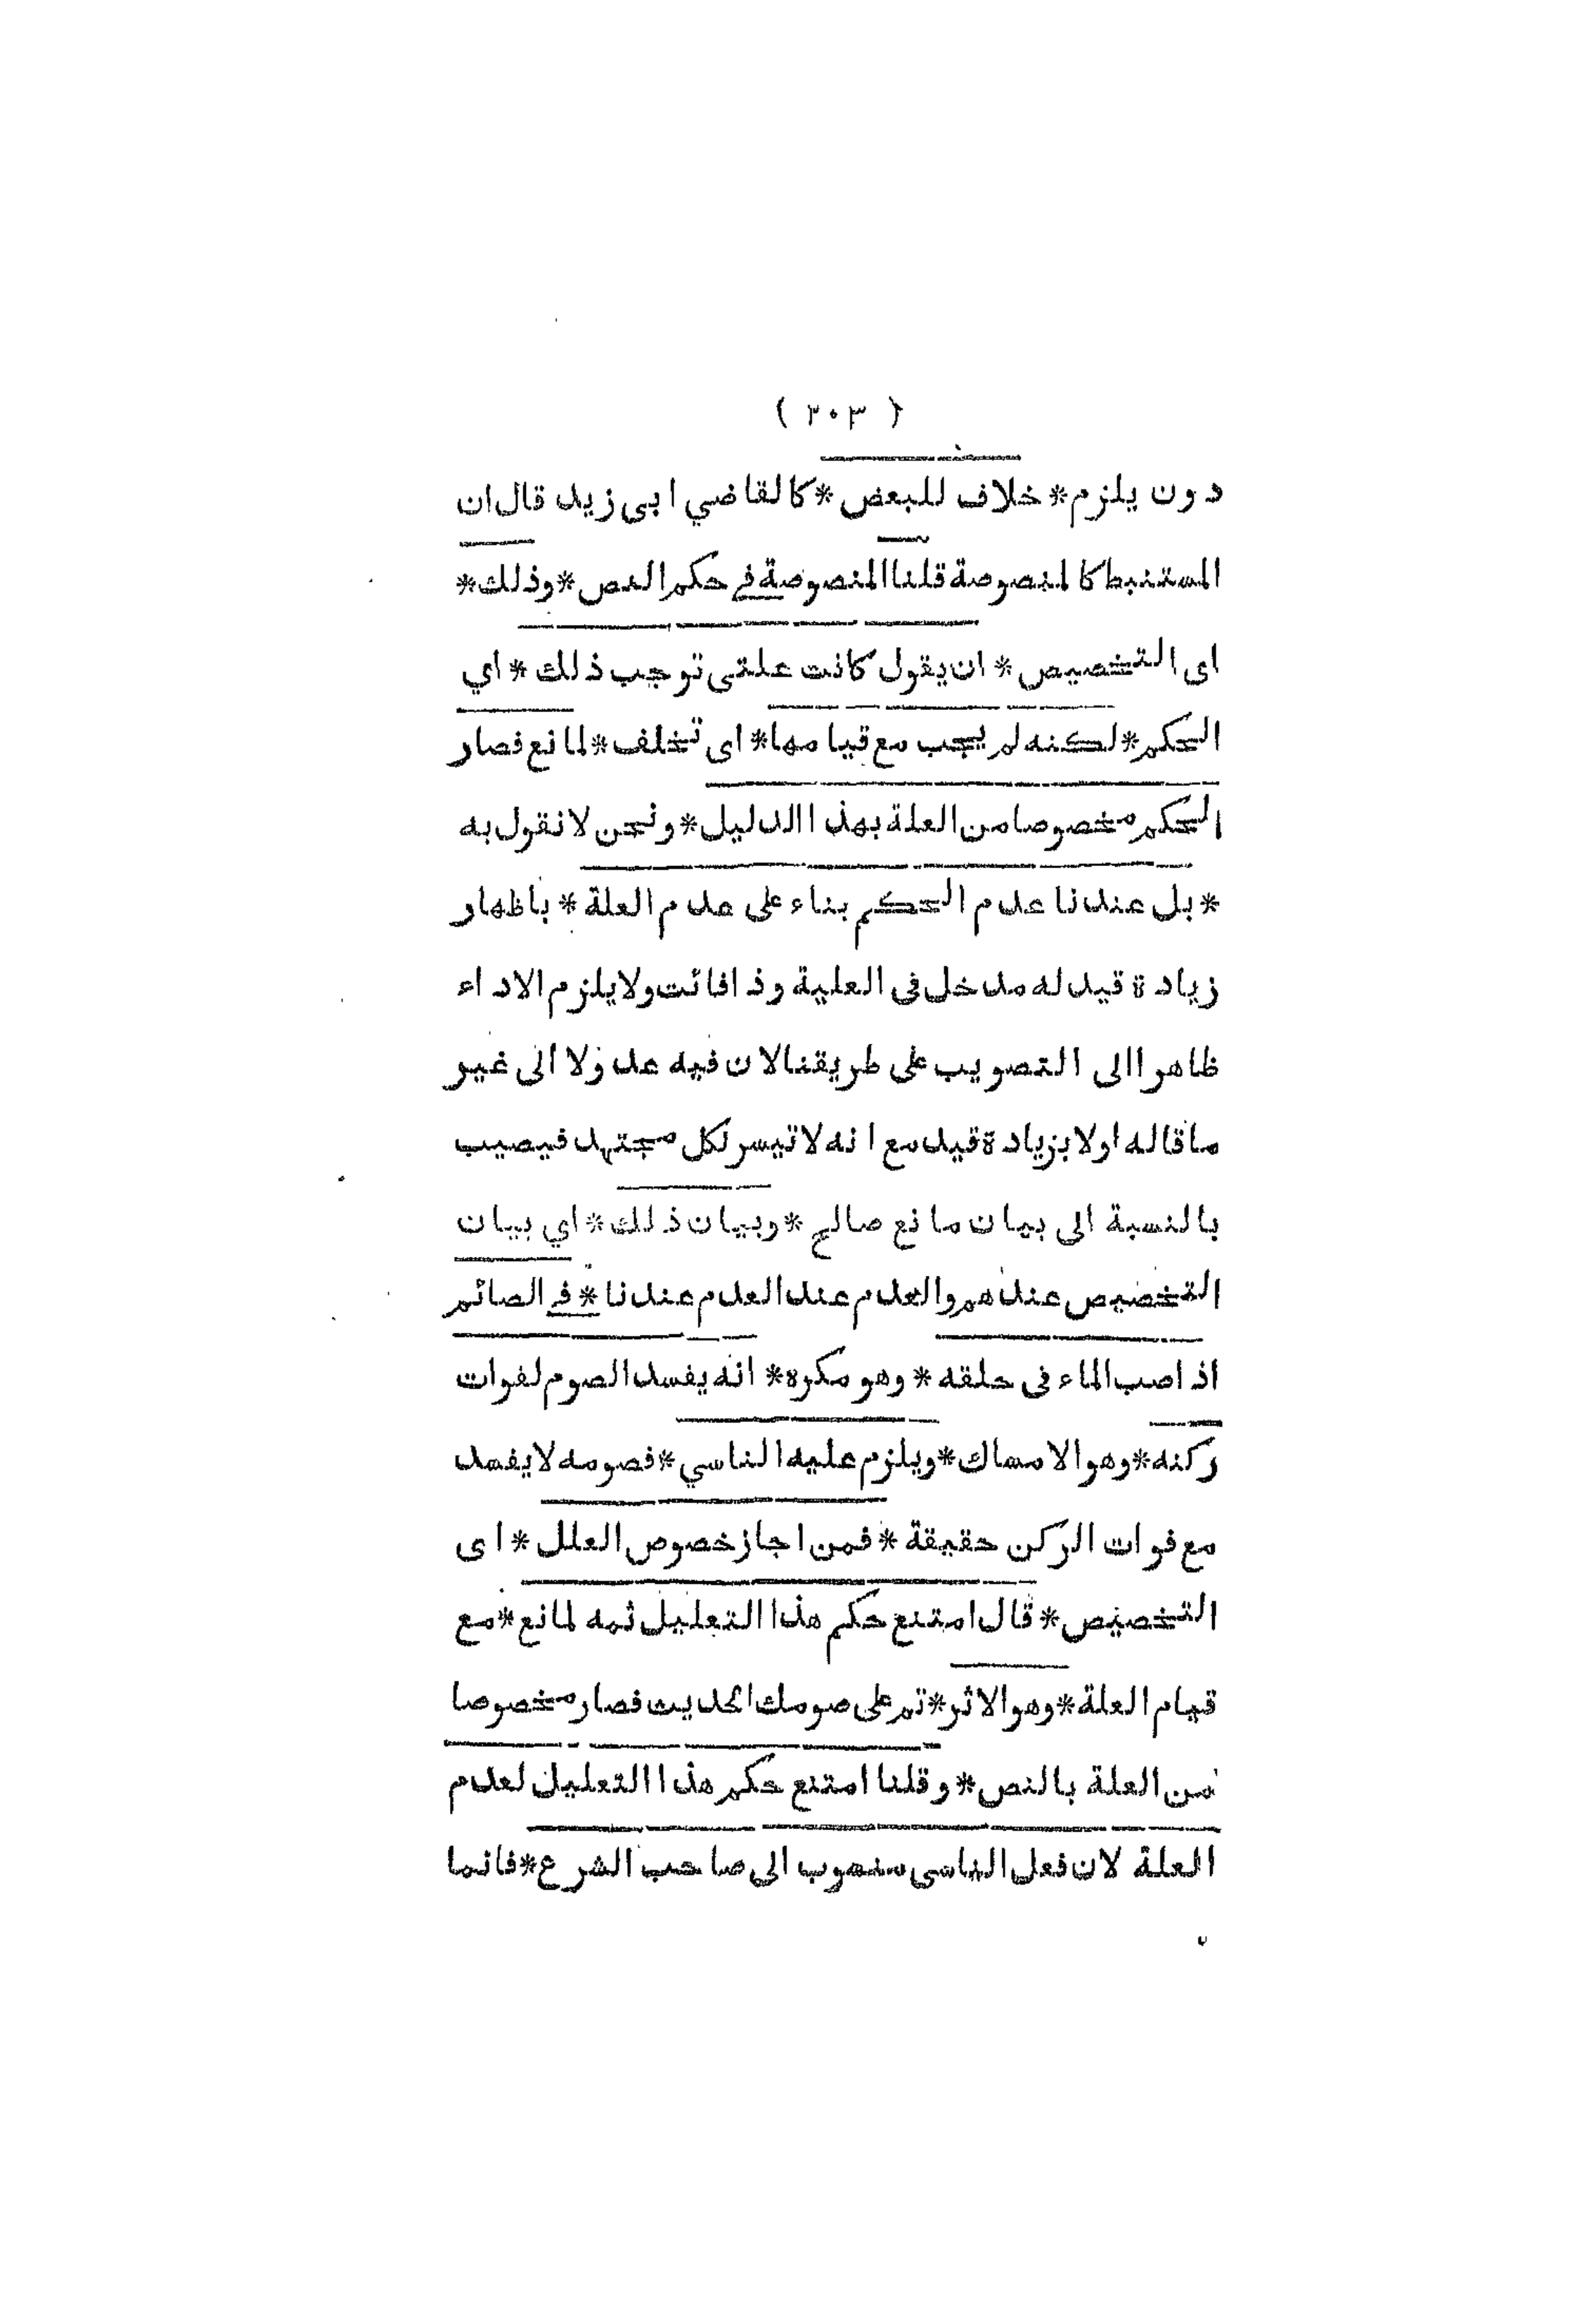 ( ٣٠٣ )
دون يلزم * خلاف للبعض * كالقاضي ابى زيد قال ان
المستنبط كالمنصوصة قلنا المنصوصة في حكم النص * وذلك *
اى التخصيص * ان يقول كانت علتى توجب ذلك * اي
الحكم * لكنه لم يجب مع قيامها * اى تخلف * لمانع فصار
الحكم مخصوصا من العلة بهذا الدليل * ونحن لا نقول به
* بل عندنا عدم الحكم بناء على عدم العلة * باظهار
زيادة قيد له مدخل فى العلية وذا فائت ولا يلزم الاداء
ظاهرا الى التصويب على طريقنا لان فيه عدولا الى غير
ما قاله اولا بزيادة قيد مع انه لا تيسر لكل مجتهد فيصيب
بالنسبة الى بيان مانع صالح * وبيان ذلك * اي بيان
التخصيص عندهم والعدم عند العدم عندنا * في الصائم
اذا صب الماء فى حلقه * وهو مكره * انه يفسد الصوم لفوات
ركنه * وهو الامساك * ويلزم عليه الناسي * فصومه لا يفسد
مع فوات الركن حقيقة * فمن اجاز خصوص العلل * اى
التخصيص * قال امتنع حكم هذا التعليل ثمه لمانع * مع
قيام العلة * وهو الاثر * تم على صومك الحديث فصار مخصوصا
من العلة بالنص * وقلنا امتنع حكم هذا التعليل لعدم
العلة لان فعل الناسى منسوب الى صاحب الشرع * فانما